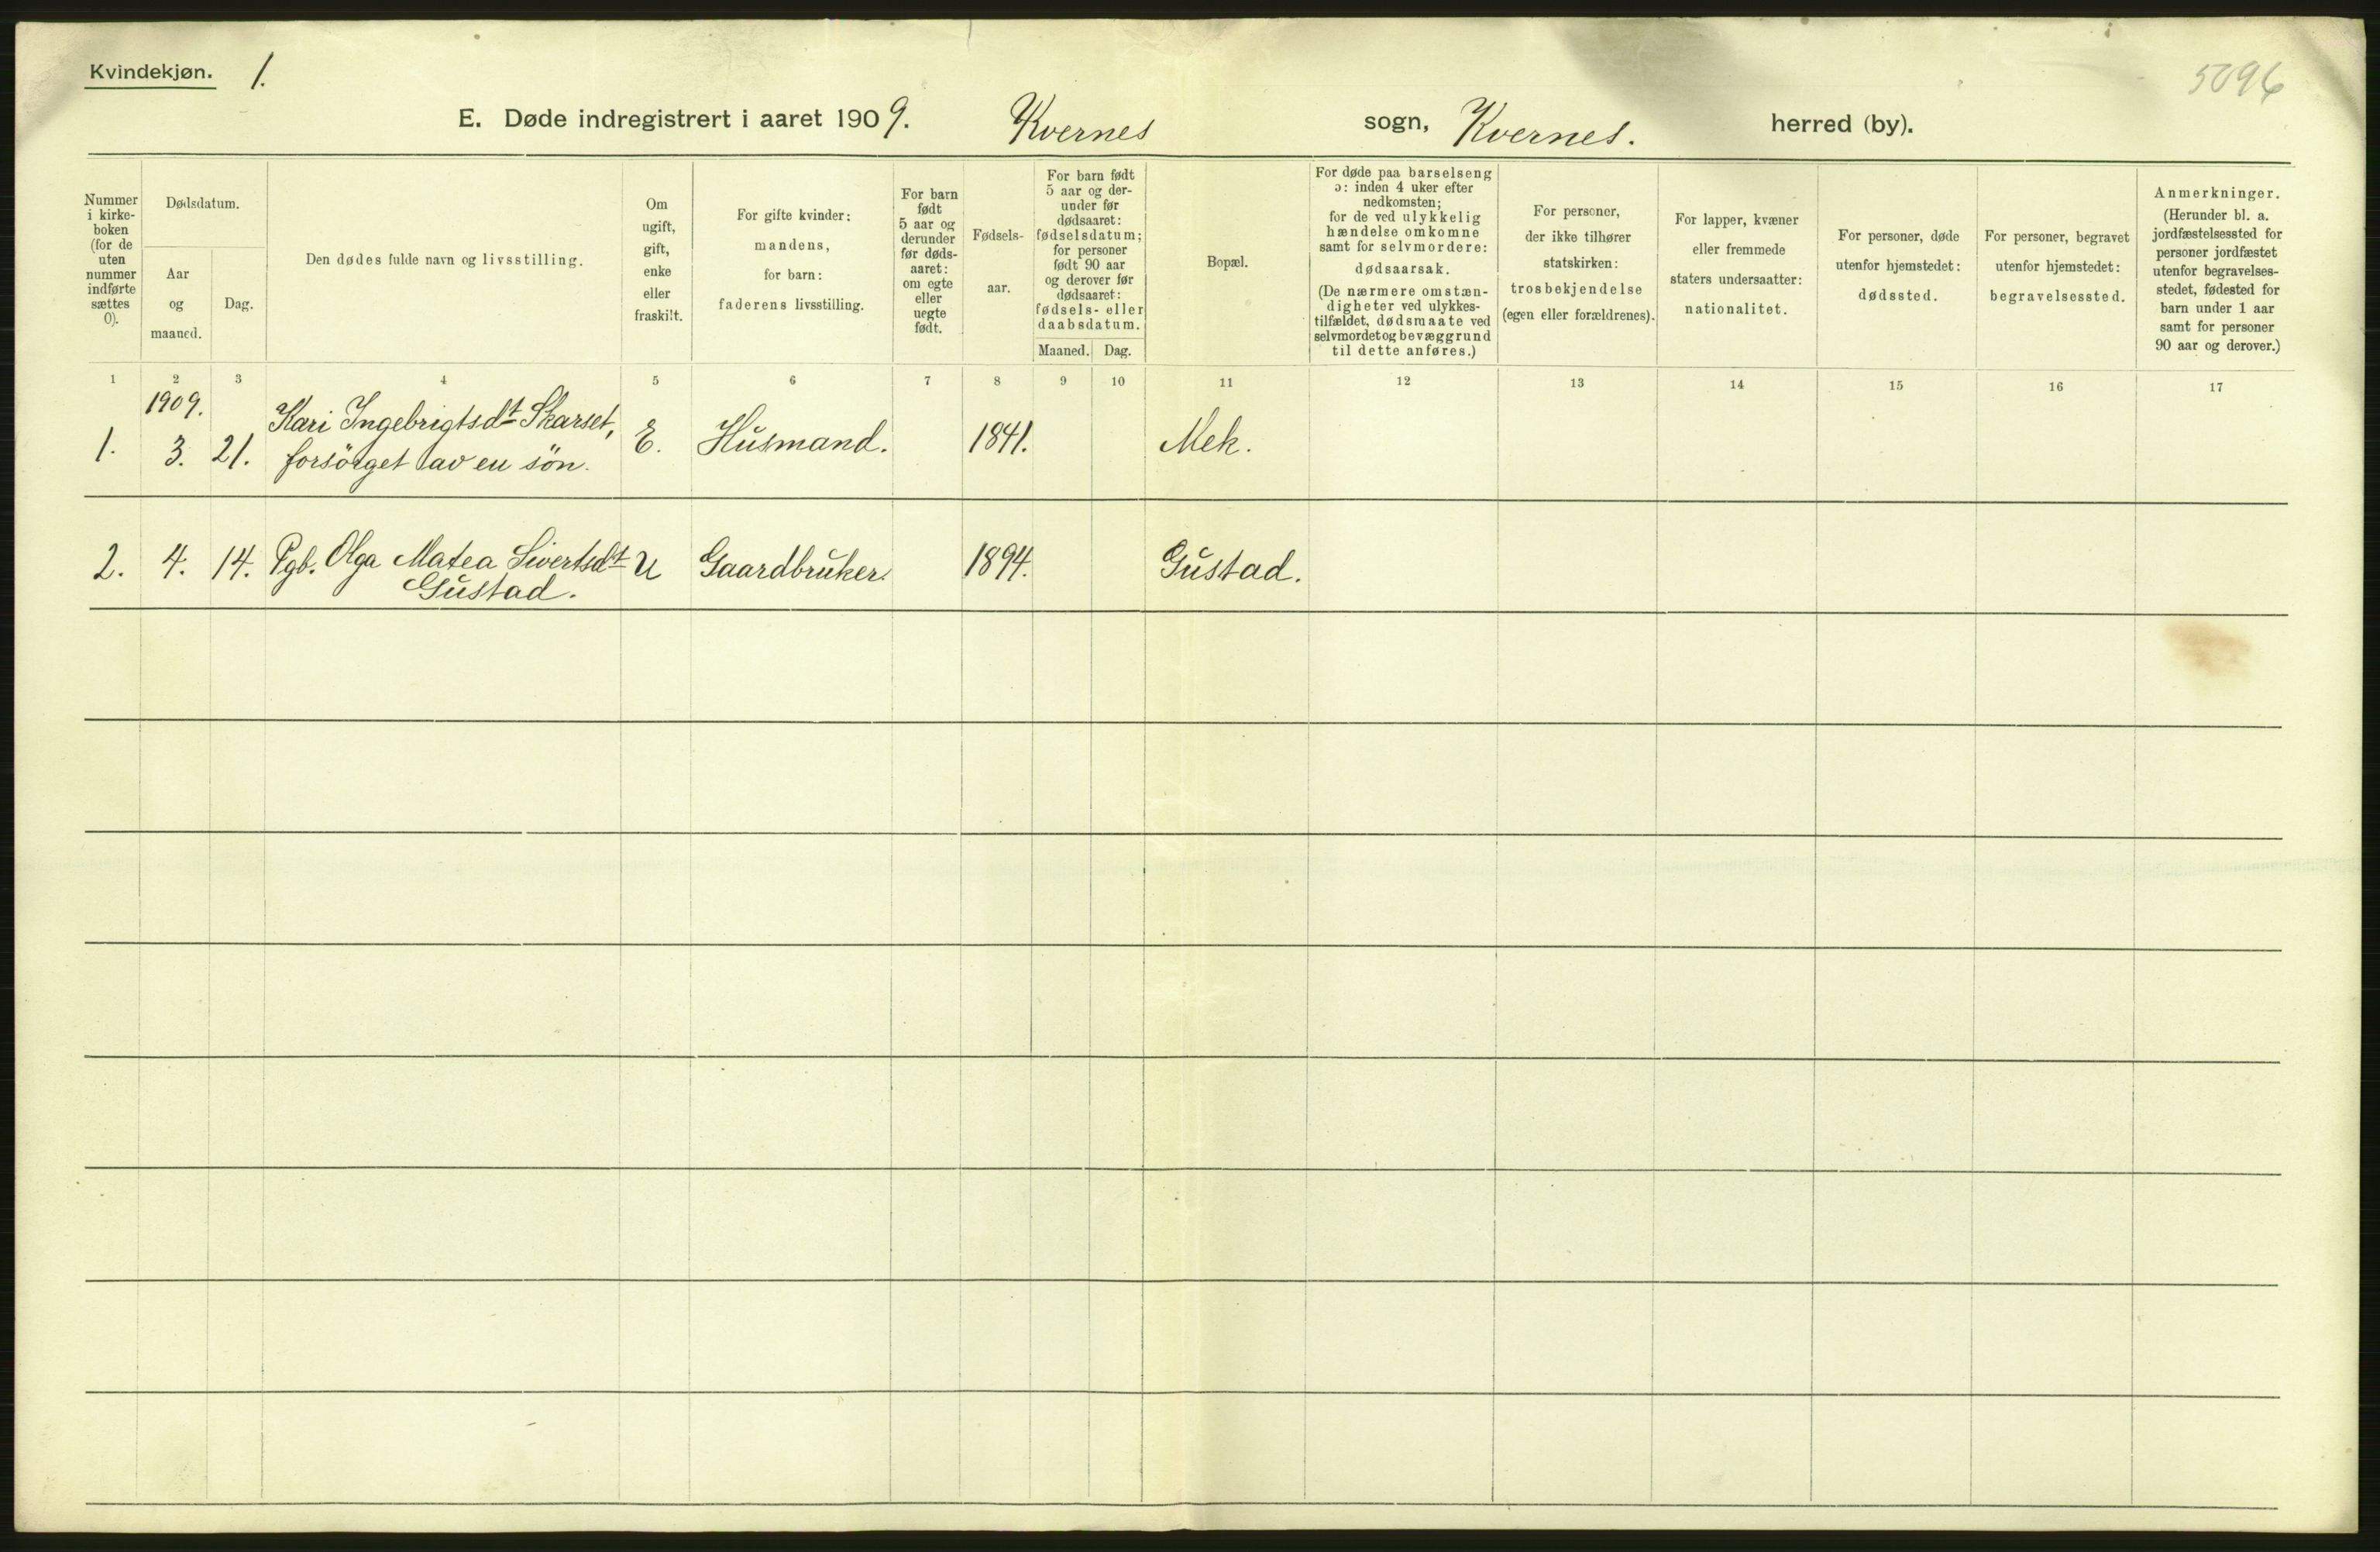 Kvindekjøn. 1.
5096
E. Døde indregistrert i aaret 1909. Kvernes sogn, Kvernes. herred (by).
Nummer
i kirke-
boken
(for de
uten
nummer
indførte
sættes
0).
Dødsdatum.
Aar
og
maaned.
Dag.
Den dødes fulde navn og livsstilling.
Om
ugift,
gift,
enke
eller
fraskilt.
For gifte kvinder:
mandens,
for barn:
faderens livsstilling.
For barn
født
5 aar og
derunder
før døds-
aaret:
om egte
eller
uegte
født.
Fødsels-
aar.
For barn født
5 aar og der-
under før
dødsaaret:
fødselsdatum;
for personer
født 90 aar
og derover før
dødsaaret:
fødsels- eller
daabsdatum.
Maaned. Dag.
Bopæl.
For døde paa barselseng
ɔ: inden 4 uker efter
nedkomsten;
for de ved ulykkelig
hændelse omkomne
samt for selvmordere:
dødsaarsak.
(De nærmere omstæn-
digheter ved ulykkes-
tilfældet, dødsmaate ved
selvmordet og bevæggrund
til dette anføres.)
For personer,
der ikke tilhører
statskirken:
trosbekjendelse
(egen eller forældrenes).
For lapper, kvæner
eller fremmede
staters undersaatter:
nationalitet.
For personer, døde
utenfor hjemstedet:
dødssted.
For personer, begravet
utenfor hjemstedet:
begravelsessted.
Anmerkninger.
(Herunder bl. a.
jordfæstelsessted for
personer jordfæstet
utenfor begravelses-
stedet, fødested for
barn under 1 aar
samt for personer
90 aar og derover.)
1 2 3 4 5 6 7 8 9 10 11 12 13 14 15 16 17
1909.
1. 3. 21. Kari Ingebrigtsdt Skarset, E. Husmand. 1841. Mek.
forsörget av en sön.
2. 4. 14. Pgb. Olga Matea Sivertsdt U Gaardbruker. 1894. Gustad.
Gustad.